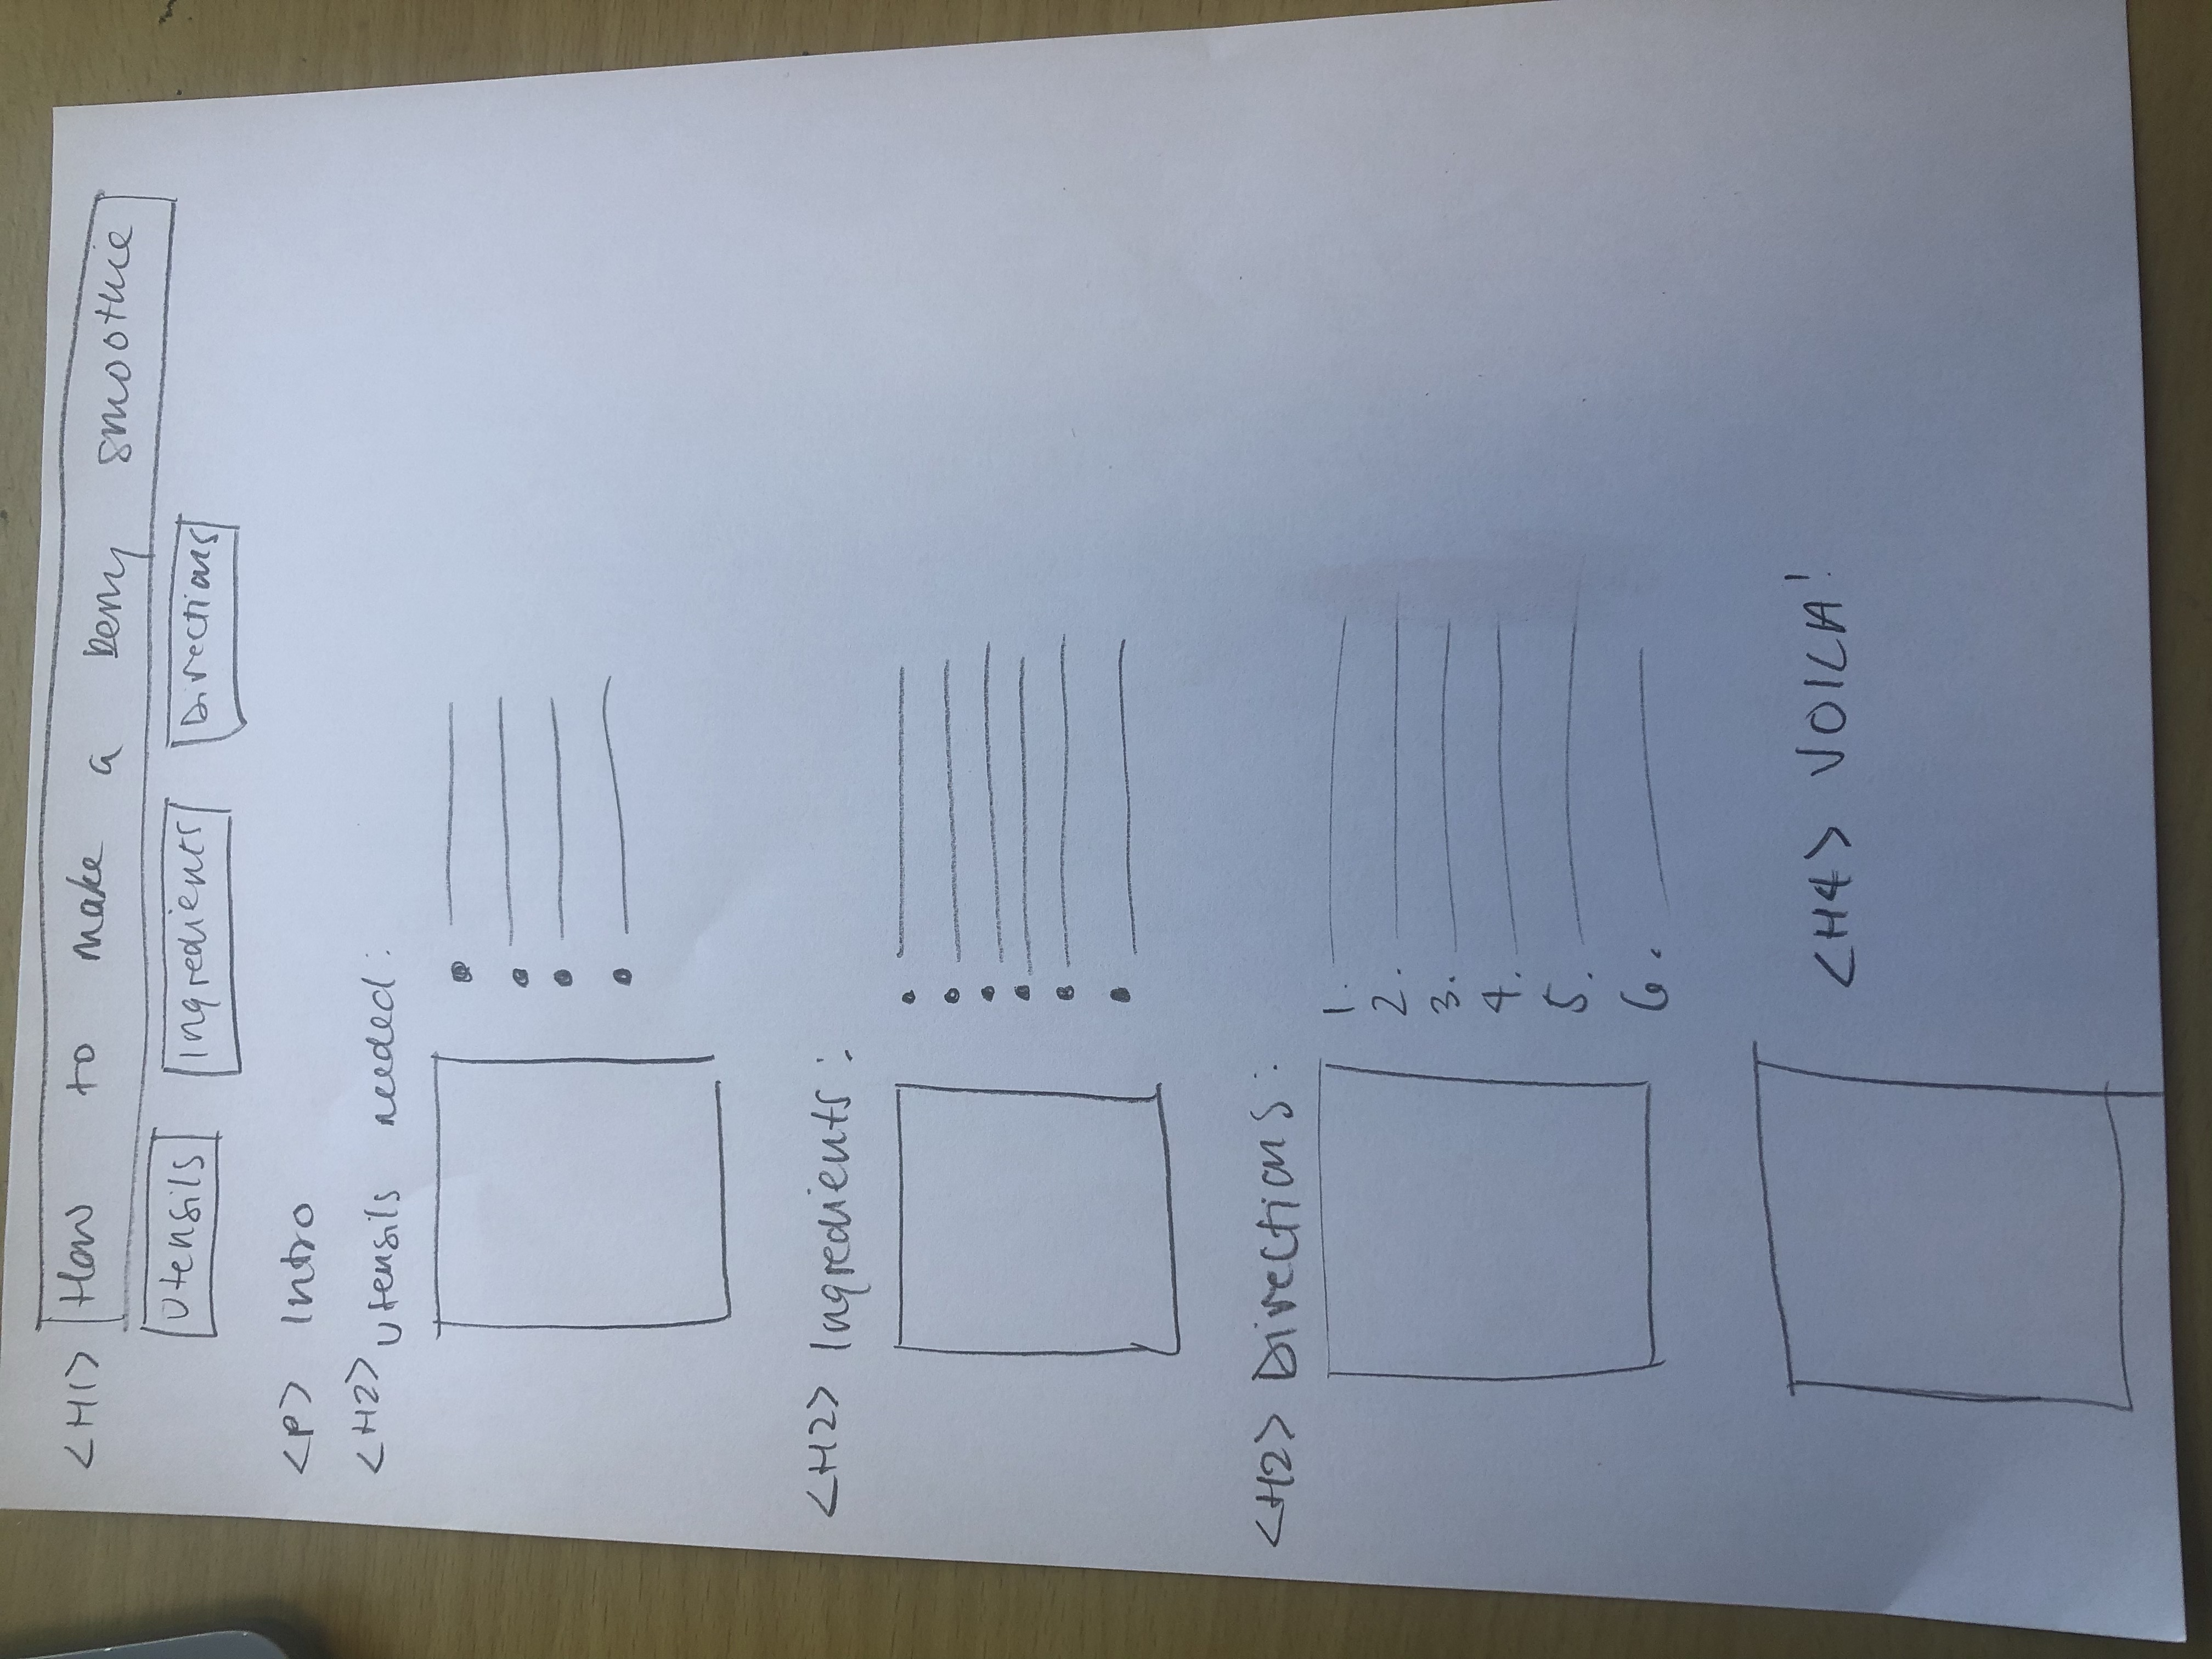 <H1> How to make a berry smoothie
Utensils Ingredients Directions
<P> Intro
<H2> Utensils needed:
<H2> Ingredients:
<H2> Directions:
1.
2.
3.
4.
5.
6.
<H4> VOILA!